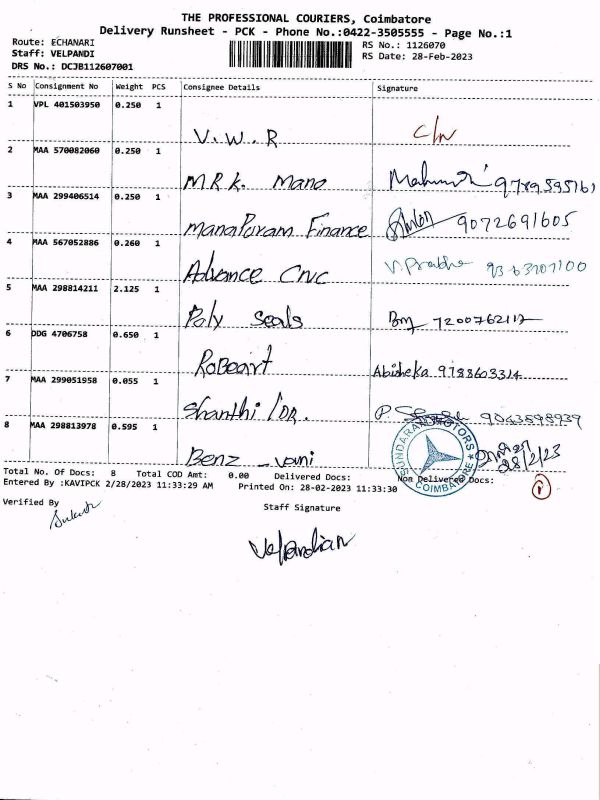 THE PROFESSIONAL COURIERS, Coimbatore
Delivery Runsheet - PCK - Phone No.:0422-3505555 - Page No.:1
Route: ECHANARI
RS No.: 1126070
Staff: VELPANDI
RS Date: 28-Feb-2023
DRS No.: DCJB112607001
S No Consignment No Weight PCS Consignee Details Signature
1 VPL 401503950 0.250 1
V. W. R C/W
2 MAA 570082060 0.250 1
M.R.K. Mano
3 MAA 299406514 0.250 1
ManaPuram Finance 9072691605
4 MAA 567052886 0.260 1
Advance CNC V. Prabhu
5 MAA 298814211 2.125 1
Poly Seals
6 DDG 4706758 0.650 1
RoBeart Abisheka 9788603314
7 MAA 299051958 0.055 1
Shanthi / DR.
8 MAA 298813978 0.595 1
Benz - vani 28/2/23
SUNDARAM MOTORS
COIMBATORE
Total No. Of Docs: 8 Total COD Amt: 0.00 Delivered Docs: Non Delivered Docs:
Entered By :KAVIPCK 2/28/2023 11:33:29 AM Printed On: 28-02-2023 11:33:30
Verified By
Staff Signature
Velpandian